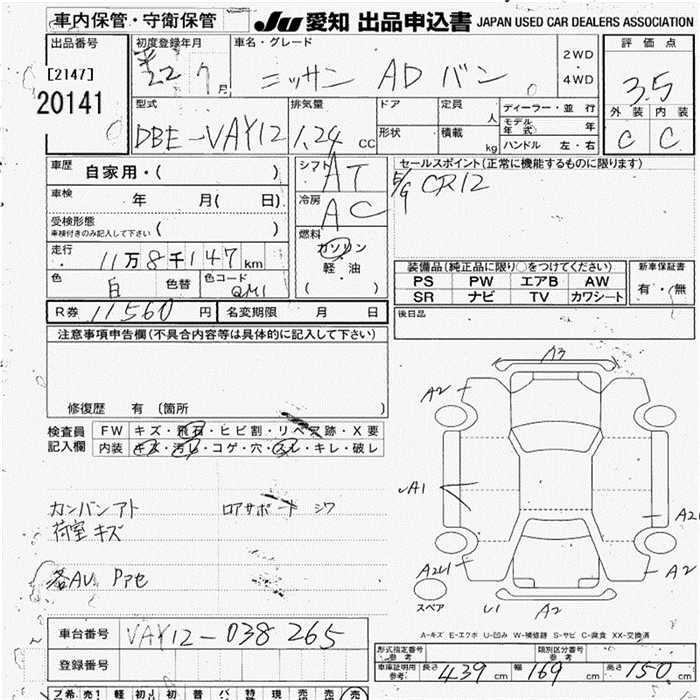 車内保管・守衛保管
JU 愛知 出品申込書 JAPAN USED CAR DEALERS ASSOCIATION
出品番号
[2147]
20141
初度登録年月
22 7月
車名・グレード
ニッサン AD バン
2WD
・
4WD
評価点
3.5
外装 内装
C C
型式
DBE-VAY12
排気量
1.24 CC
ドア
形状
定員 人
積載 kg
ディーラー・並行
モデル年式 年
ハンドル 左・右
車歴 自家用・( )
車検 年 月( 日)
受検形態
車検付きのみ記入して下さい ( )
走行
11万8千147km
色 白 色替 色コード QM1
シフト AT
冷房 AC
燃料
ガソリン
軽油
( )
セールスポイント(正常に機能するものに限ります)
E/G CR12
装備品(純正品に限り○をつけてください)
PS PW エアB AW
SR ナビ TV カワシート
新車保証書
有・無
R券 11560円 名変期限 月 日
後日品
注意事項申告欄(不具合内容等は具体的に記入して下さい)
修復歴 有 〔箇所 〕
検査員記入欄
FW キズ・飛石・ヒビ割・リペア跡・X要
内装 キズ・汚レ・コゲ・穴・スレ・キレ・破レ
カンバンアト ロアサポート シワ
荷室キズ
各AU Pアセ
A3
A2
A1
A2
A2
A2
U1 A2
スペア
A-キズ E-エクボ U-凹み W-補修跡 S-サビ C-腐食 XX-交換済
車台番号 VAY12-038265
登録番号
形式指定番号 参考
類別区分番号 参考
車庫証明用 参考 長さ 439cm 幅 169cm 高さ 150cm